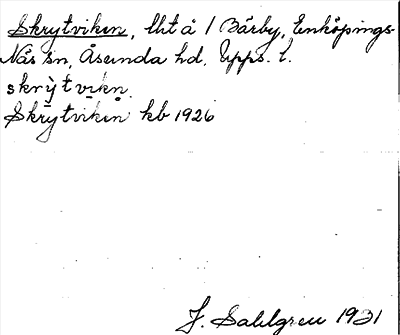 Skrytviken, lht å 1 Bärby, Enköpings-
Näs sn, Åsunda hd, Upps. l.
skrỳtvikn
Skrytviken kb 1926
J. Sahlgren 1931